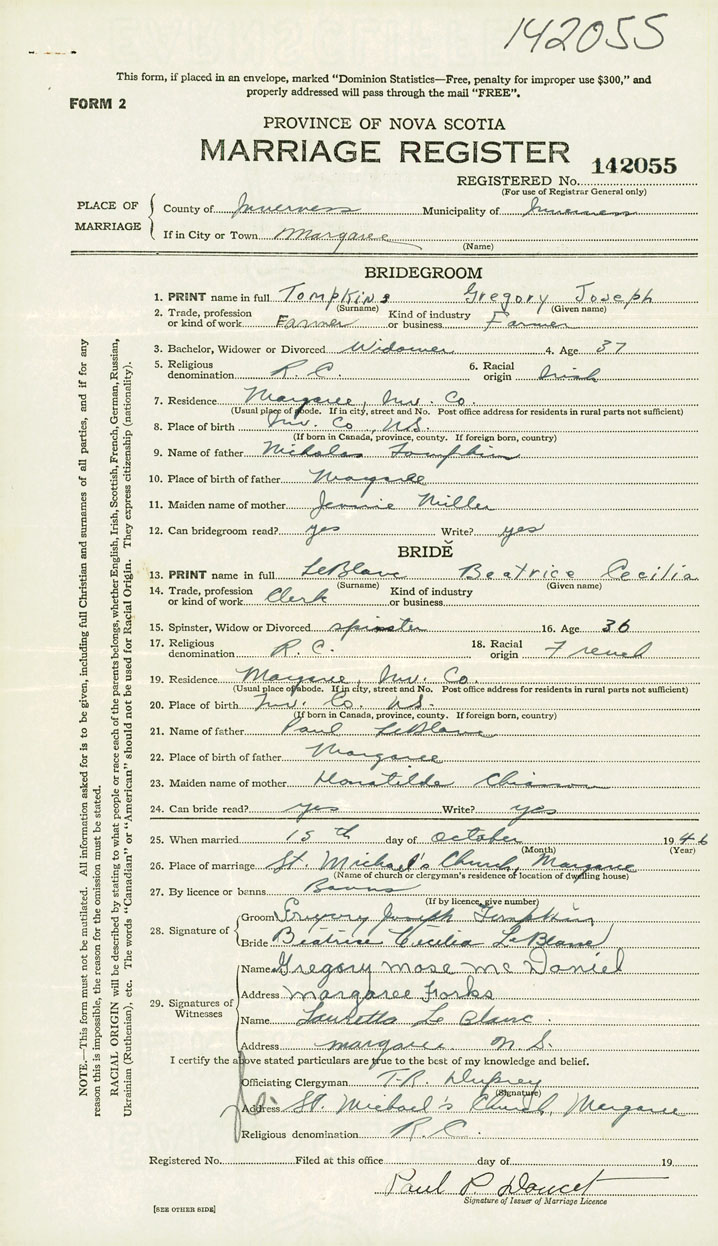 142055
This form, if placed in an envelope, marked "Dominion Statistics—Free, penalty for improper use $300," and
properly addressed will pass through the mail "FREE".
FORM 2
PROVINCE OF NOVA SCOTIA
MARRIAGE REGISTER 142055
REGISTERED No.
(For use of Registrar General only)
PLACE OF MARRIAGE
County of Inverness Municipality of Inverness
If in City or Town Margaree
(Name)
BRIDEGROOM
1. PRINT name in full Tompkins Gregory Joseph
(Surname) (Given name)
2. Trade, profession or kind of work Farmer Kind of industry or business Farmer
3. Bachelor, Widower or Divorced Widower 4. Age 37
5. Religious denomination R.C. 6. Racial origin Irish
7. Residence Margaree, Inv. Co.
(Usual place of abode. If in city, street and No. Post office address for residents in rural parts not sufficient)
8. Place of birth Inv. Co, N.S.
(If born in Canada, province, county. If foreign born, country)
9. Name of father Nicholas Tompkins
10. Place of birth of father Margaree
11. Maiden name of mother Jennie Miller
12. Can bridegroom read? yes Write? yes
BRIDE
13. PRINT name in full LeBlanc Beatrice Cecilia
(Surname) (Given name)
14. Trade, profession or kind of work Clerk Kind of industry or business
15. Spinster, Widow or Divorced spinster 16. Age 36
17. Religious denomination R.C. 18. Racial origin French
19. Residence Margaree, Inv. Co.
(Usual place of abode. If in city, street and No. Post office address for residents in rural parts not sufficient)
20. Place of birth Inv. Co. N.S.
(If born in Canada, province, county. If foreign born, country)
21. Name of father Paul LeBlanc
22. Place of birth of father Margaree
23. Maiden name of mother Chiasson
24. Can bride read? yes Write? yes
25. When married 15th day of October 1946
(Month) (Year)
26. Place of marriage St. Michael's Church, Margaree
(Name of church or clergyman's residence or location of dwelling house)
27. By licence or banns Banns
(If by licence, give number)
28. Signature of
Groom Gregory Joseph Tompkins
Bride Beatrice Cecilia LeBlanc
29. Signatures of Witnesses
Name Gregory Mose McDaniel
Address Margaree Forks
Name Lauretta LeBlanc.
Address Margaree N.S.
I certify the above stated particulars are true to the best of my knowledge and belief.
Officiating Clergyman T.R.
(Signature)
Address St. Michael's Church, Margaree
Religious denomination R.C.
Registered No. Filed at this office day of 19
Paul P. Doucet
Signature of Issuer of Marriage Licence
[SEE OTHER SIDE]
NOTE.—This form must not be mutilated. All information asked for is to be given, including full Christian and surnames of all parties, and if for any
reason this is impossible, the reason for the omission must be stated.
RACIAL ORIGIN will be described by stating to what people or race each of the parents belongs, whether English, Irish, Scottish, French, German, Russian,
Ukrainian (Ruthenian), etc. The words "Canadian" or "American" should not be used for Racial Origin. They express citizenship (nationality).